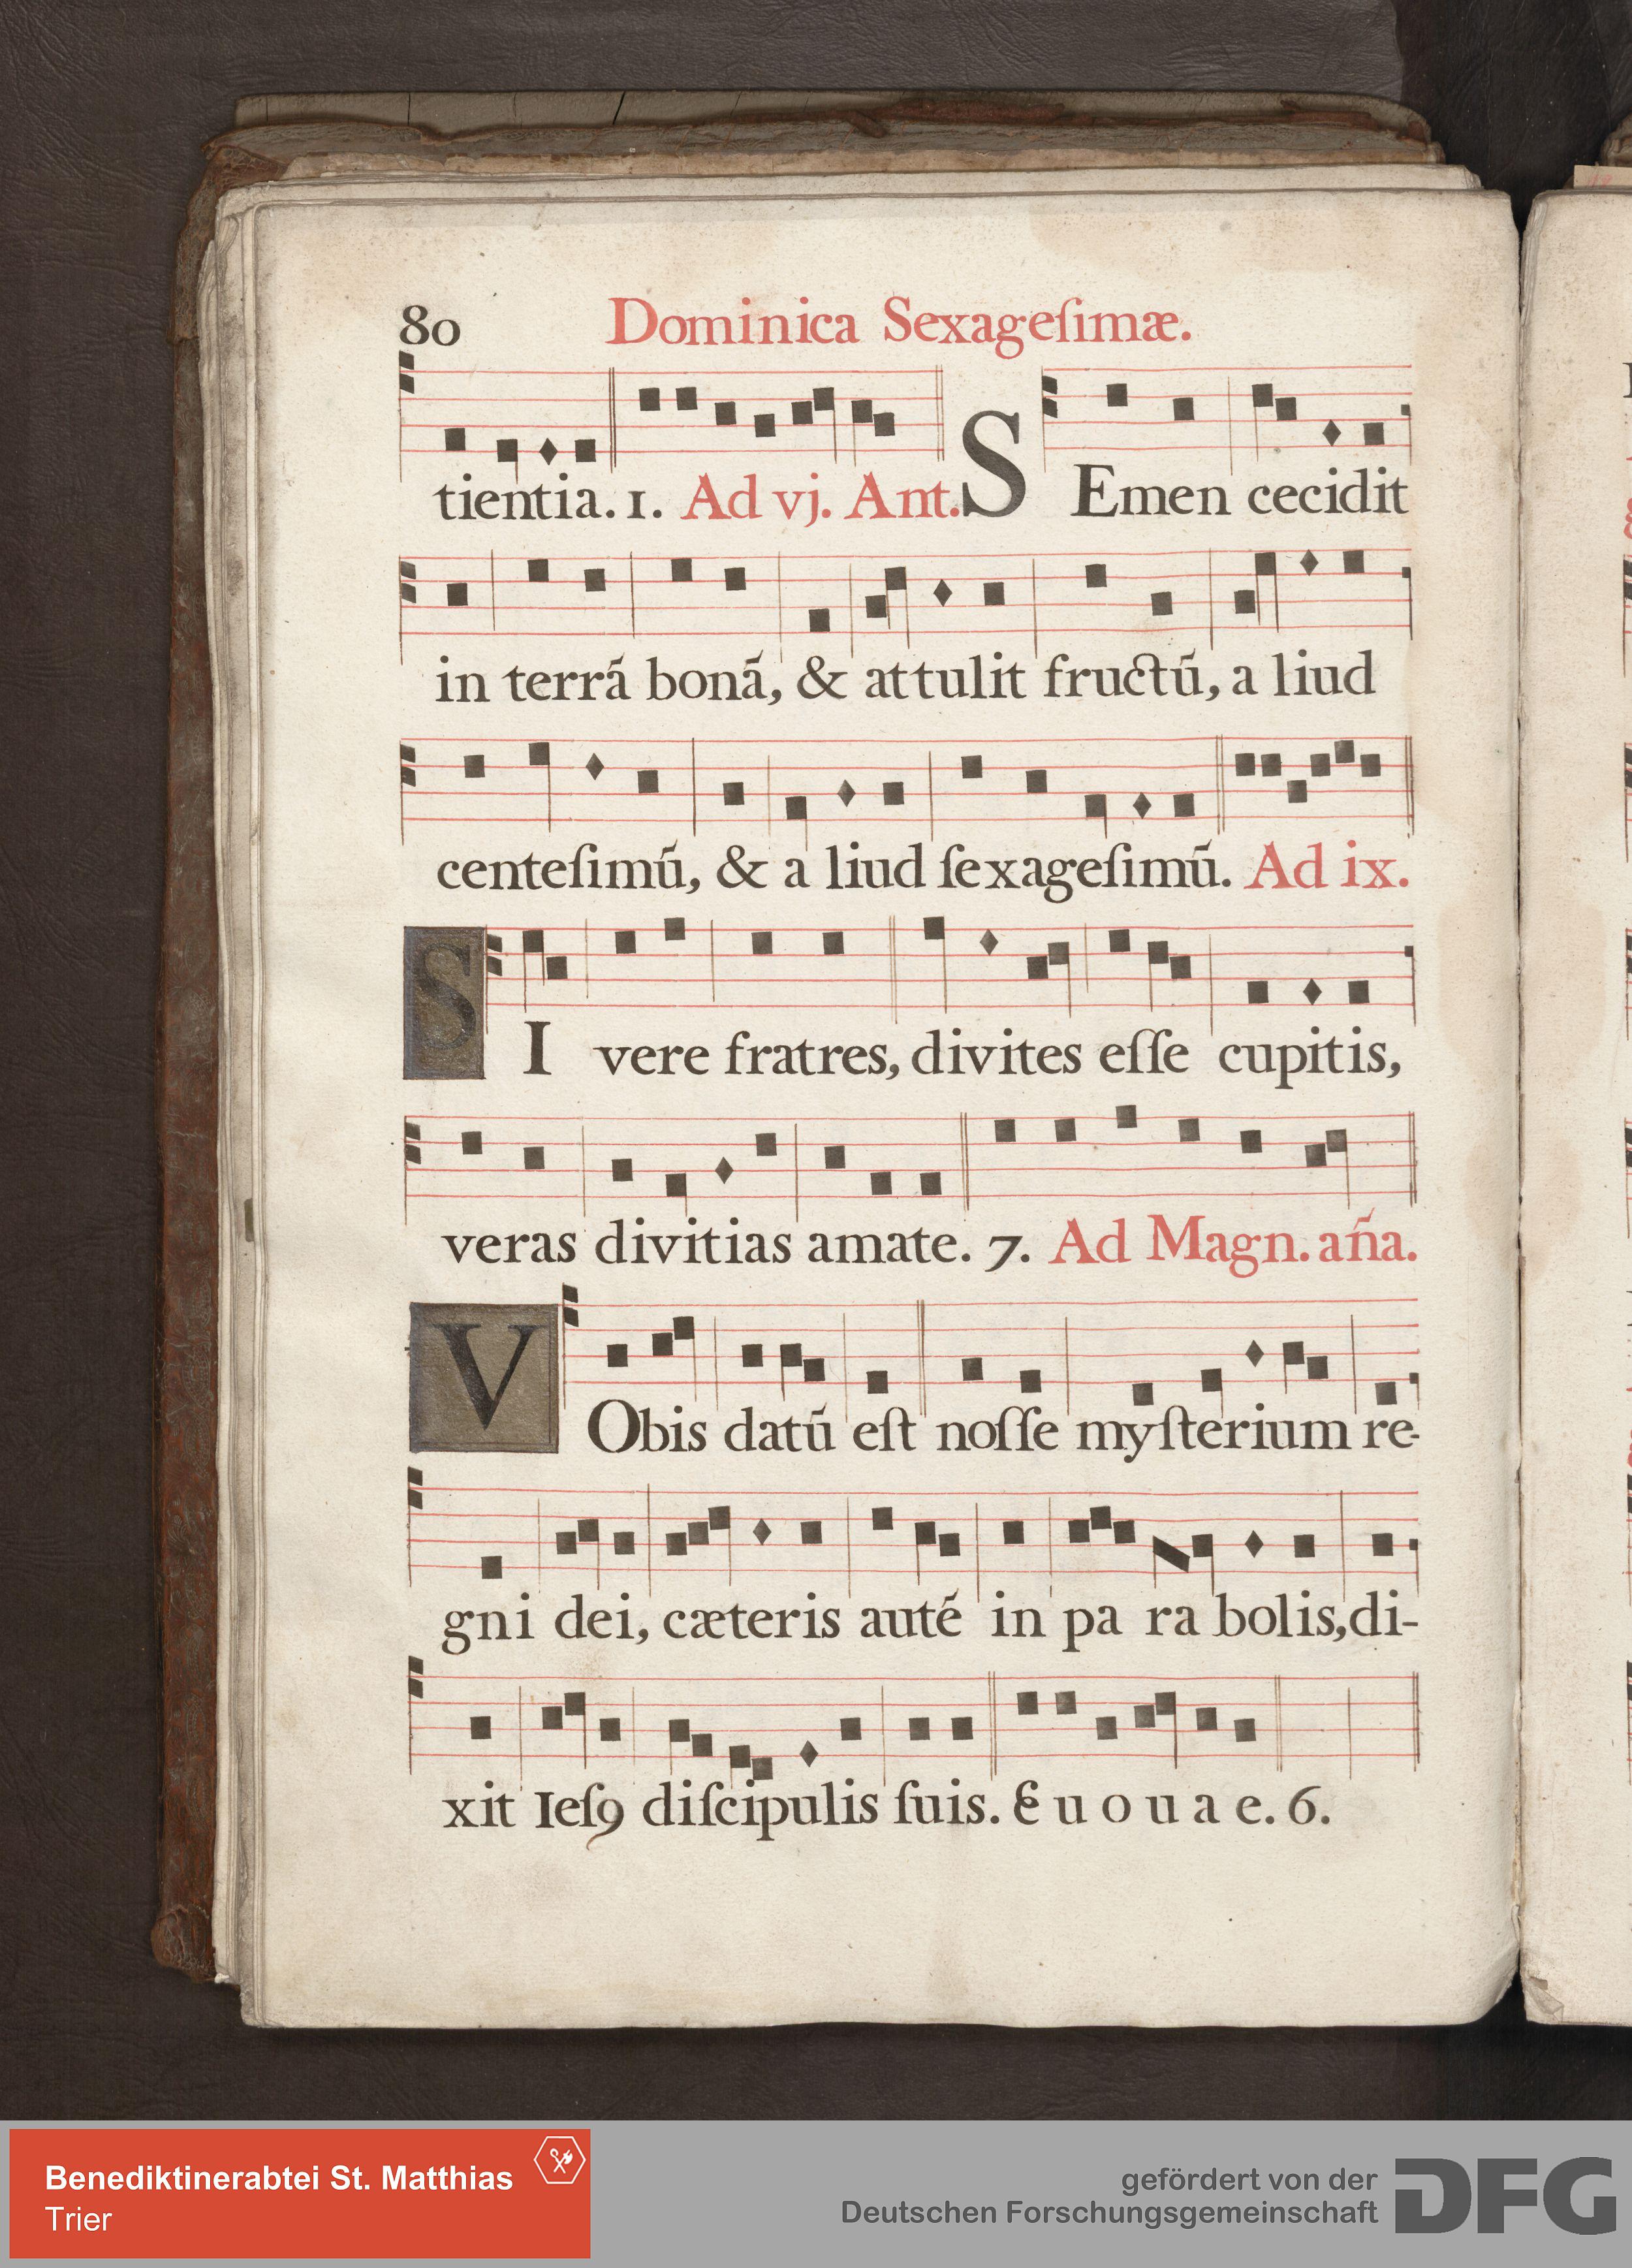 80 Dominica Sexageſimæ.
tientia. 1. Ad vj. Ant. SEmen cecidit
in terrā bonā, & attulit fructū, a liud
centeſimū, & a liud ſexageſimū. Ad ix.
SI vere fratres, divites eſſe cupitis,
veras divitias amate. 7. Ad Magn. aña.
VObis datū eſt noſſe myſterium re-
gni dei, cæteris autē in pa ra bolis, di-
xit Ieſꝯ diſcipulis ſuis. E u o u a e. 6.
Benediktinerabtei St. Matthias
Trier
gefördert von der
Deutschen Forschungsgemeinschaft
DFG